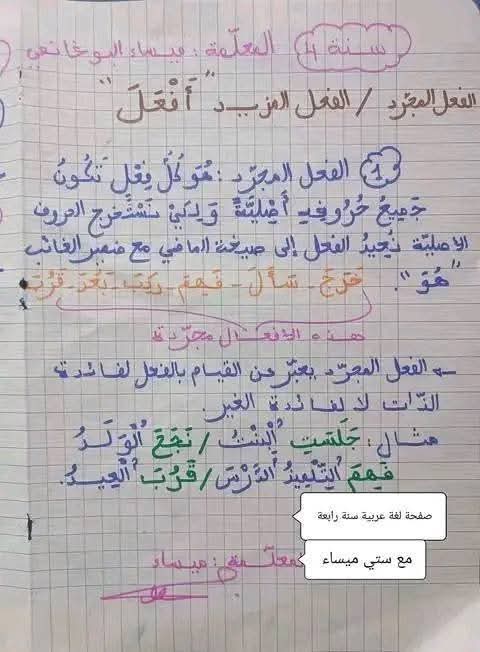 سنة 4
المعلّمة: ميساء البوغانمي
الفعل المجرّد / الفعل المزيد "أَفْعَلَ"
1 الفعل المجرّد: هُوَ كُلُّ فِعْلٍ تَكُونُ
جَمِيعُ حُرُوفِهِ أَصْلِيَّةً وَلِكَيْ نَسْتَخْرِجَ الحروف
الأصليّة نُعِيدُ الفعل إلى صيغة الماضي مع ضمير الغائب
"هُوَ".
خَرَجَ - سَأَلَ - فَهِمَ - رَكِبَ - بَعُدَ - قَرُبَ
هذه الأفعال مجرّدة
← الفعل المجرّد يعبّر عن القيام بالفعل لفائدة
الذّات لا لفائدة الغير.
مثال: جَلَسَتِ الْبِنْتُ / نَجَحَ الْوَلَدُ
فَهِمَ التِّلْمِيذُ الدَّرْسَ / قَرُبَ الْعِيدُ.
صفحة لغة عربية سنة رابعة
مع ستي ميساء
المعلّمة: ميساء